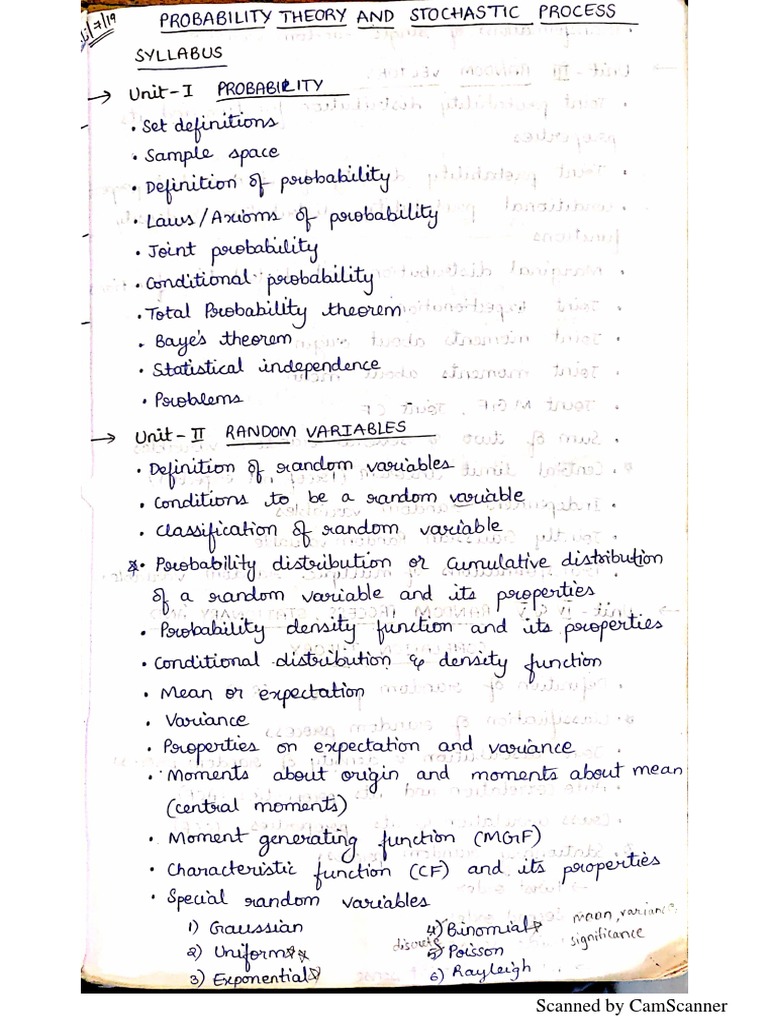 PROBABILITY THEORY AND STOCHASTIC PROCESS
SYLLABUS
→ Unit-I PROBABILITY
• Set definitions
• Sample space
• Definition of probability
• Laws/Axioms of probability
• Joint probability
• Conditional probability
• Total Probability theorem
• Baye's theorem
• Statistical independence
• Problems
→ Unit-II RANDOM VARIABLES
• Definition of random variables
• Conditions to be a random variable
• Classification of random variable
• Probability distribution or Cumulative distribution
of a random variable and its properties
• Probability density function and its properties
• Conditional distribution & density function
• Mean or expectation
• Variance
• Properties on expectation and variance
• Moments about origin and moments about mean
(central moments)
• Moment generating function (MGF)
• Characteristic function (CF) and its properties
• Special random variables
1) Gaussian
2) Uniform
3) Exponential
4) Binomial
discrete
5) Poisson
6) Rayleigh
mean, variance,
significance
Scanned by CamScanner